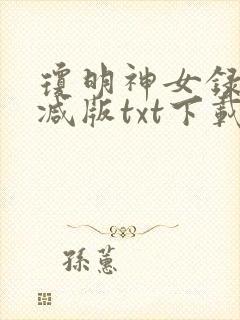 瓊明神女録
减版txt下載
孫蕙